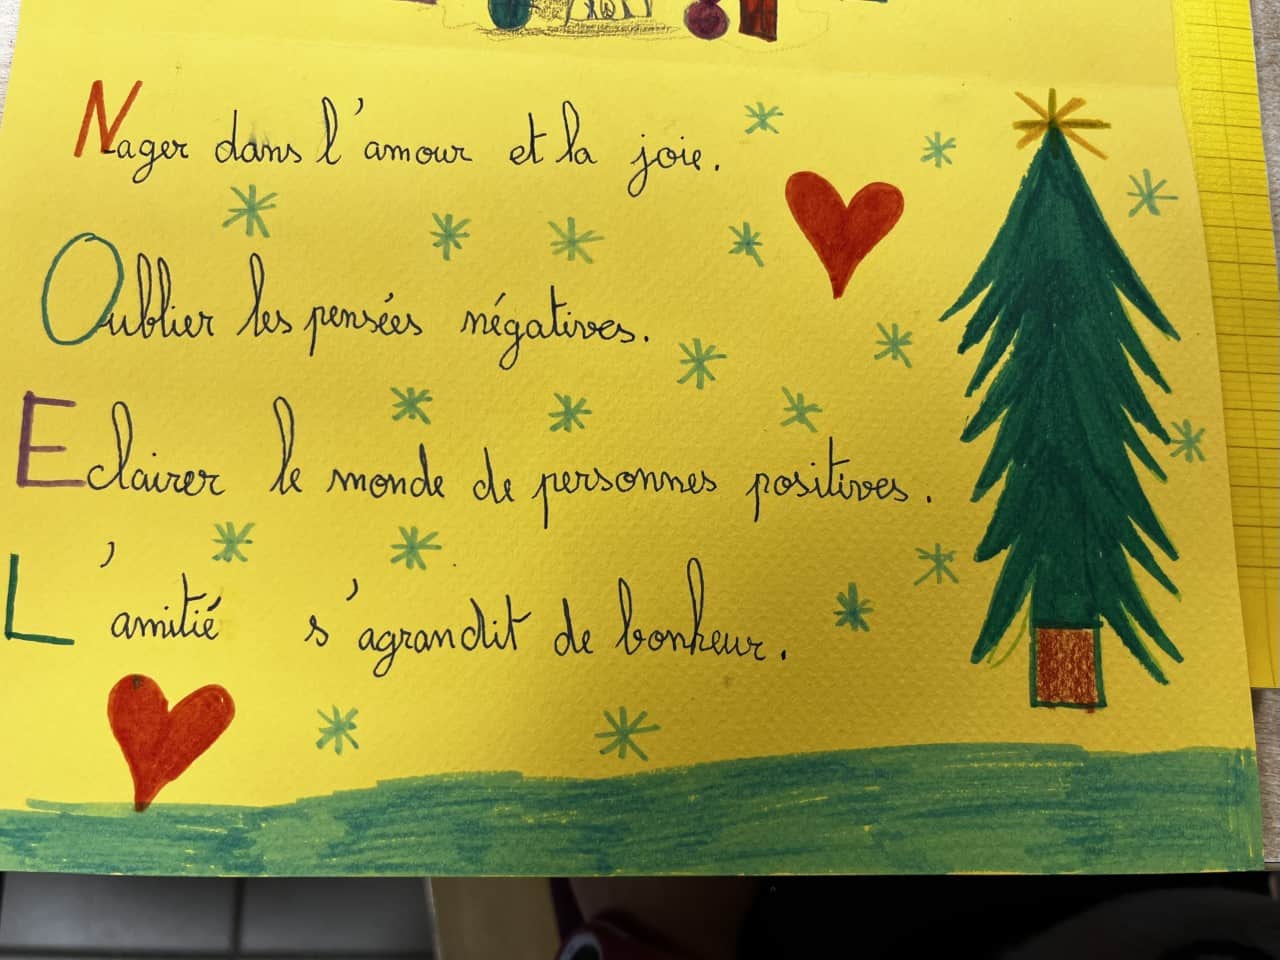 Nager dans l'amour et la joie.
Oublier les pensées négatives.
Eclairer le monde de personnes positives.
L'amitié s'agrandit de bonheur.